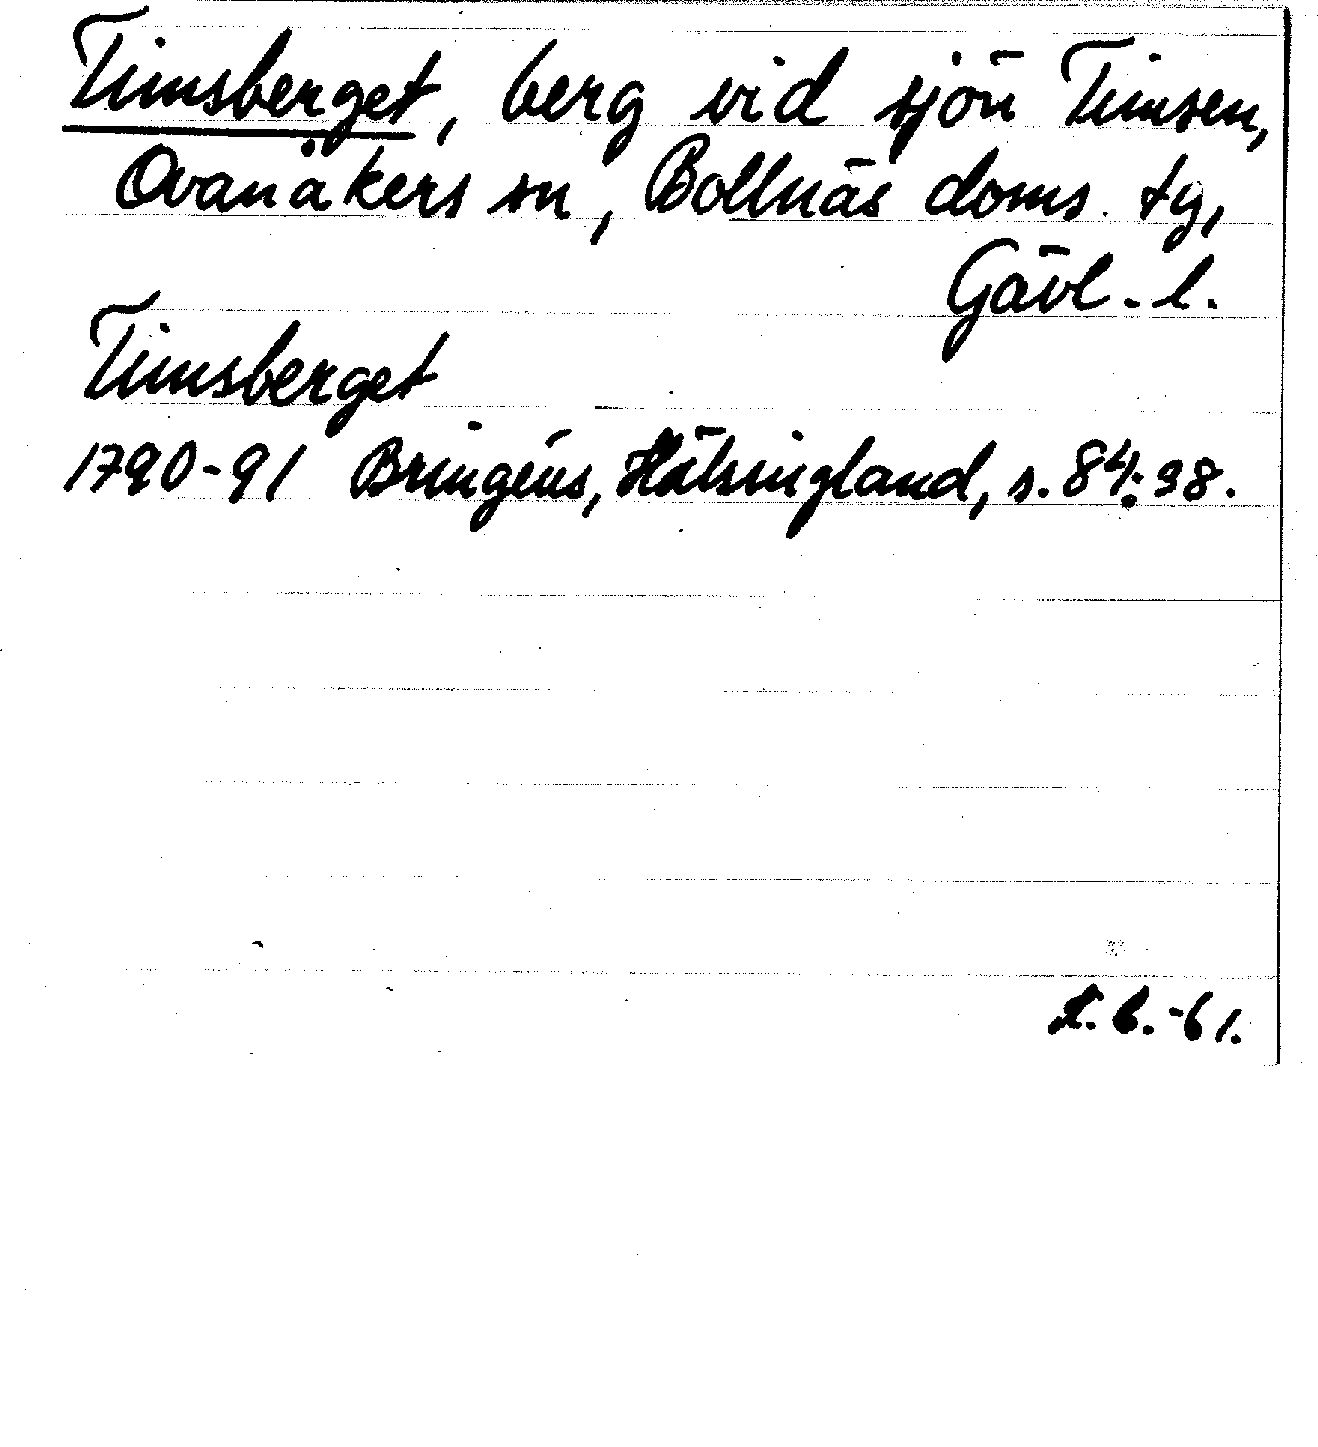 Timsberget, berg vid sjön Timsen,
Ovanåkers sn, Bollnäs doms. tg,
Gävl. l.
Timsberget
1790-91 Bringéus, Hälsingland, s. 84; 98.
-61.